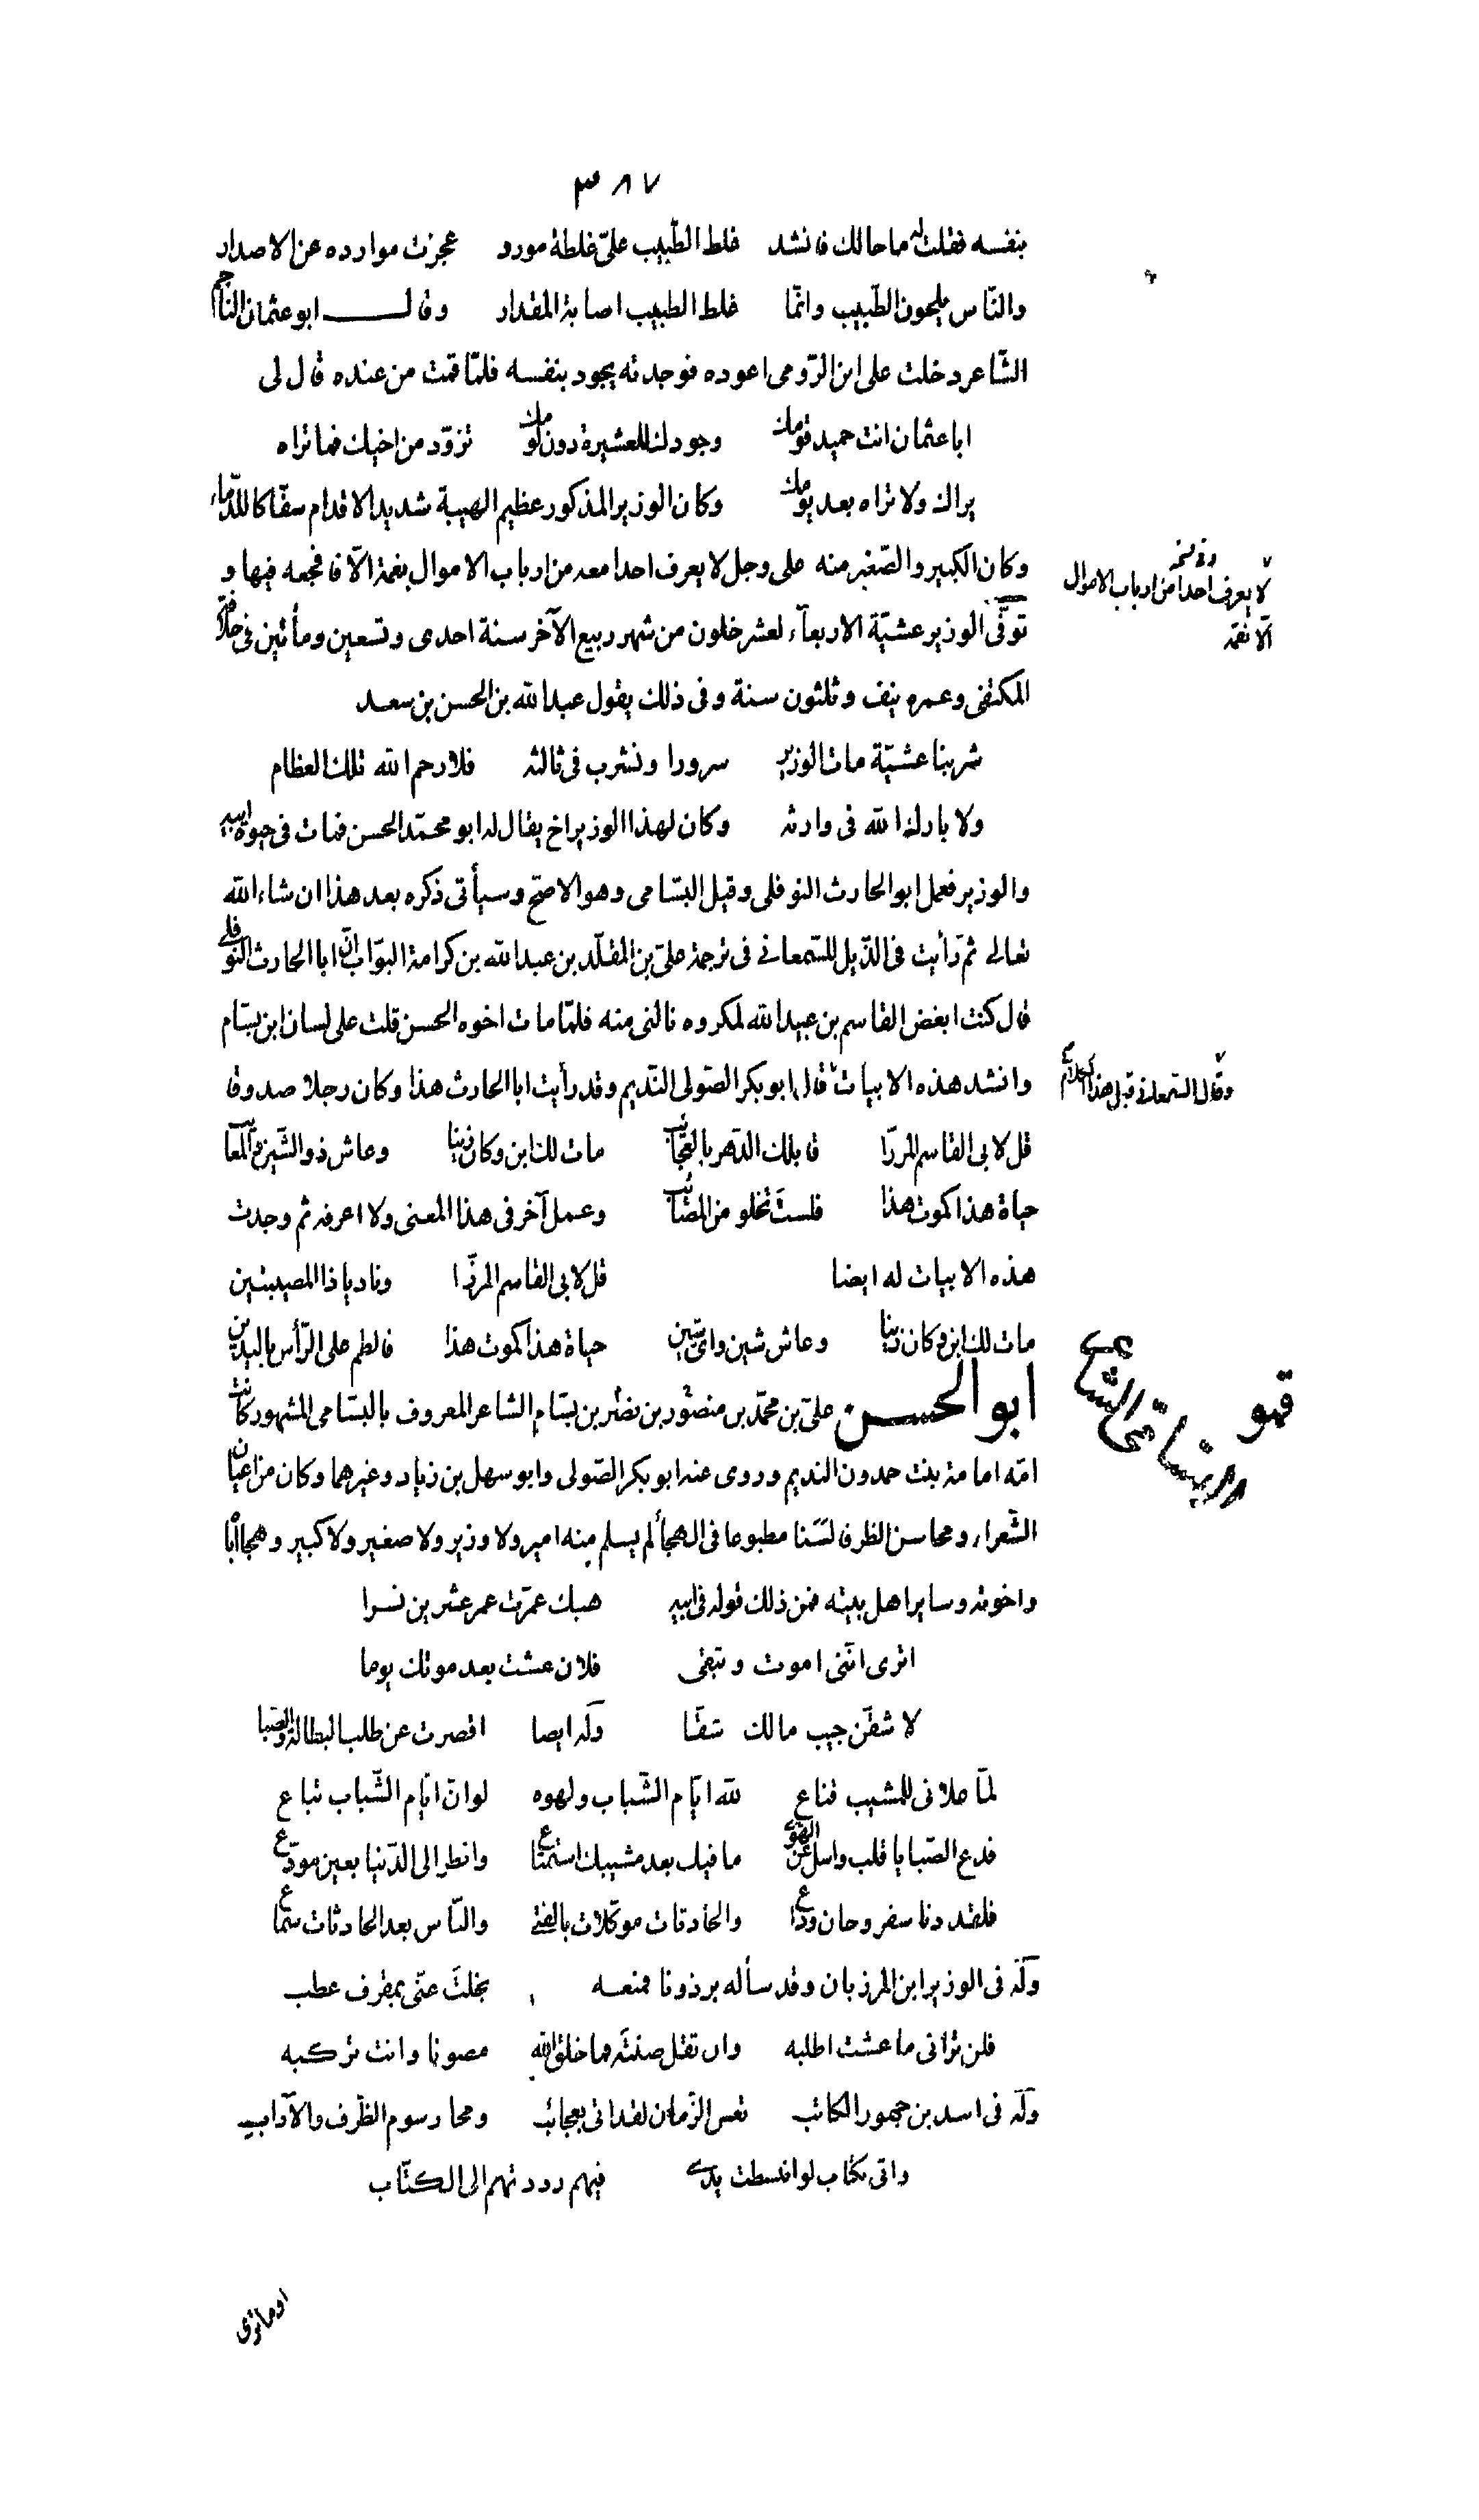 ٣٨٧
بنفسه فقلت له ما حالك فانشد غلط الطّبيب علىّ غلطة مورد عجزت موارده عن الاصدار
والنّاس يلحون الطّبيب وانّما غلط الطبيب اصابة المقدار وقال ابو عثمان الناجم
الشّاعر دخلت على ابن الرّومى اعوده فوجدته يجود بنفسه فلمّا قمت من عنده قال لى
ابا عثمان انت حميد قومك وجودك للعشيرة دون لومك تزوّد من اخيك فما تراه
يراك ولا تراه بعد يومك وكان الوزير المذكور عظيم الهيبة شديد الاقدام سفّاكا للدّماء
وكان الكبير والصّغير منه على وجل لا يعرف احدا معه من ارباب الاموال بنعمة الّا فجعه فيها و
توفّى الوزير عشيّة الاربعآء لعشر خلون من شهر ربيع الآخر سنة احدى وتسعين ومأتين فى خلافة
المكتفى وعمره نيف وثلثون سنة وفى ذلك يقول عبد الله بن الحسن بن سعد
شربنا عشيّة مات الوزير سرورا ونشرب فى ثالثه فلا رحم الله تلك العظام
ولا بارك الله فى وارثه وكان لهذا الوزير اخ يقال له ابو محمّد الحسن فمات فى حيوة ابيه
والوزير فعمل ابو الحارث النوفلى وقيل البسّامى وهو الاصحّ وسيأتى ذكره بعد هذا ان شاء الله
تعالى ثمّ رأيت فى الذّيل للسّمعانى فى ترجمة علىّ بن المقلّد بن عبد الله بن كرامة البوّاب انّ ابا الحارث النوفلى
قال كنت ابغض القاسم بن عبيد الله لمكروه نالنى منه فلمّا مات اخوه الحسن قلت على لسان ابن بسّام
وانشد هذه الابيات قال ابو بكر الصّولى النّديم وقد رأيت ابا الحارث هذا وكان رجلا صدوقا
قل لابى القاسم المرزّا قابلك الدّهر بالعجائب مات لك ابن وكان زينا وعاش ذو الشّين والمعائب
حياة هذا كموت هذا فلستَ تخلو من المصائب وعمل آخر فى هذا المعنى ولا اعرفه ثم وجدت
هذه الابيات له ايضا قل لابى القاسم المرزّا وناد يا ذا المصيبتين
مات لك ابن وكان زينا وعاش شين واىّ شين حياة هذا كموت هذا فالطم على الرّأس باليدين
ابو الحسن علىّ بن محمّد بن منصور بن نصر بن بسّام الشاعر المعروف بالبسّامى المشهور كانت
امّه امامة بنت حمدون النديم وروى عنه ابو بكر الصّولى وابو سهل بن زياد وغيرهما وكان من اعيان
الشّعراء ومحاسن الظرفا لَسِنا مطبوعا فى الهجأ لم يسلم منه امير ولا وزير ولا صغير ولا كبير وهجا اباه
واخوته وساير اهل بيته فمن ذلك قوله فى ابيه هبك عمّرت عمر عشرين نسرا
اترى انّنى اموت وتبقى فلان عشت بعد موتك يوما
لا شقّن جيب مالك شقّا وله ايضا اقصرت عن طلب البطالة والصّبا
لمّا علانى للمشيب قناع لله ايّام الشّباب ولهوه لو انّ ايّام الشّباب تباع
فدع الصّبا يا قلب واسل عن الهوى ما فيك بعد مشيبك استمتاع وانظر الى الدّنيا بعين مودّع
فلقد دنا سفر وحان وداع والحادثات موكّلات بالفتى والنّاس بعد الحادثات سماع
وله فى الوزير ابن المرزبان وقد سأله برذونا فمنعه بخلتَ عنّى بمقرف عطب
فلن ترانى ما عشت اطلبه وان تقل صنتَه فما خلق الله مصونا وانت تركبه
وله فى اسد بن جهور الكاتب تعس الزّمان لقد اتى بعجائب ومحا رسوم الظّرف والآداب
واتى بكتّاب لو انبسطت يدى فيهم رددتهم الى الكتّاب
او ما ترى
وفى نسخة
لا يعرف احدا من ارباب الاموال
الّا نقمه
وقال السّمعانى قبل هذا الكلام
البسّامى الشاعر